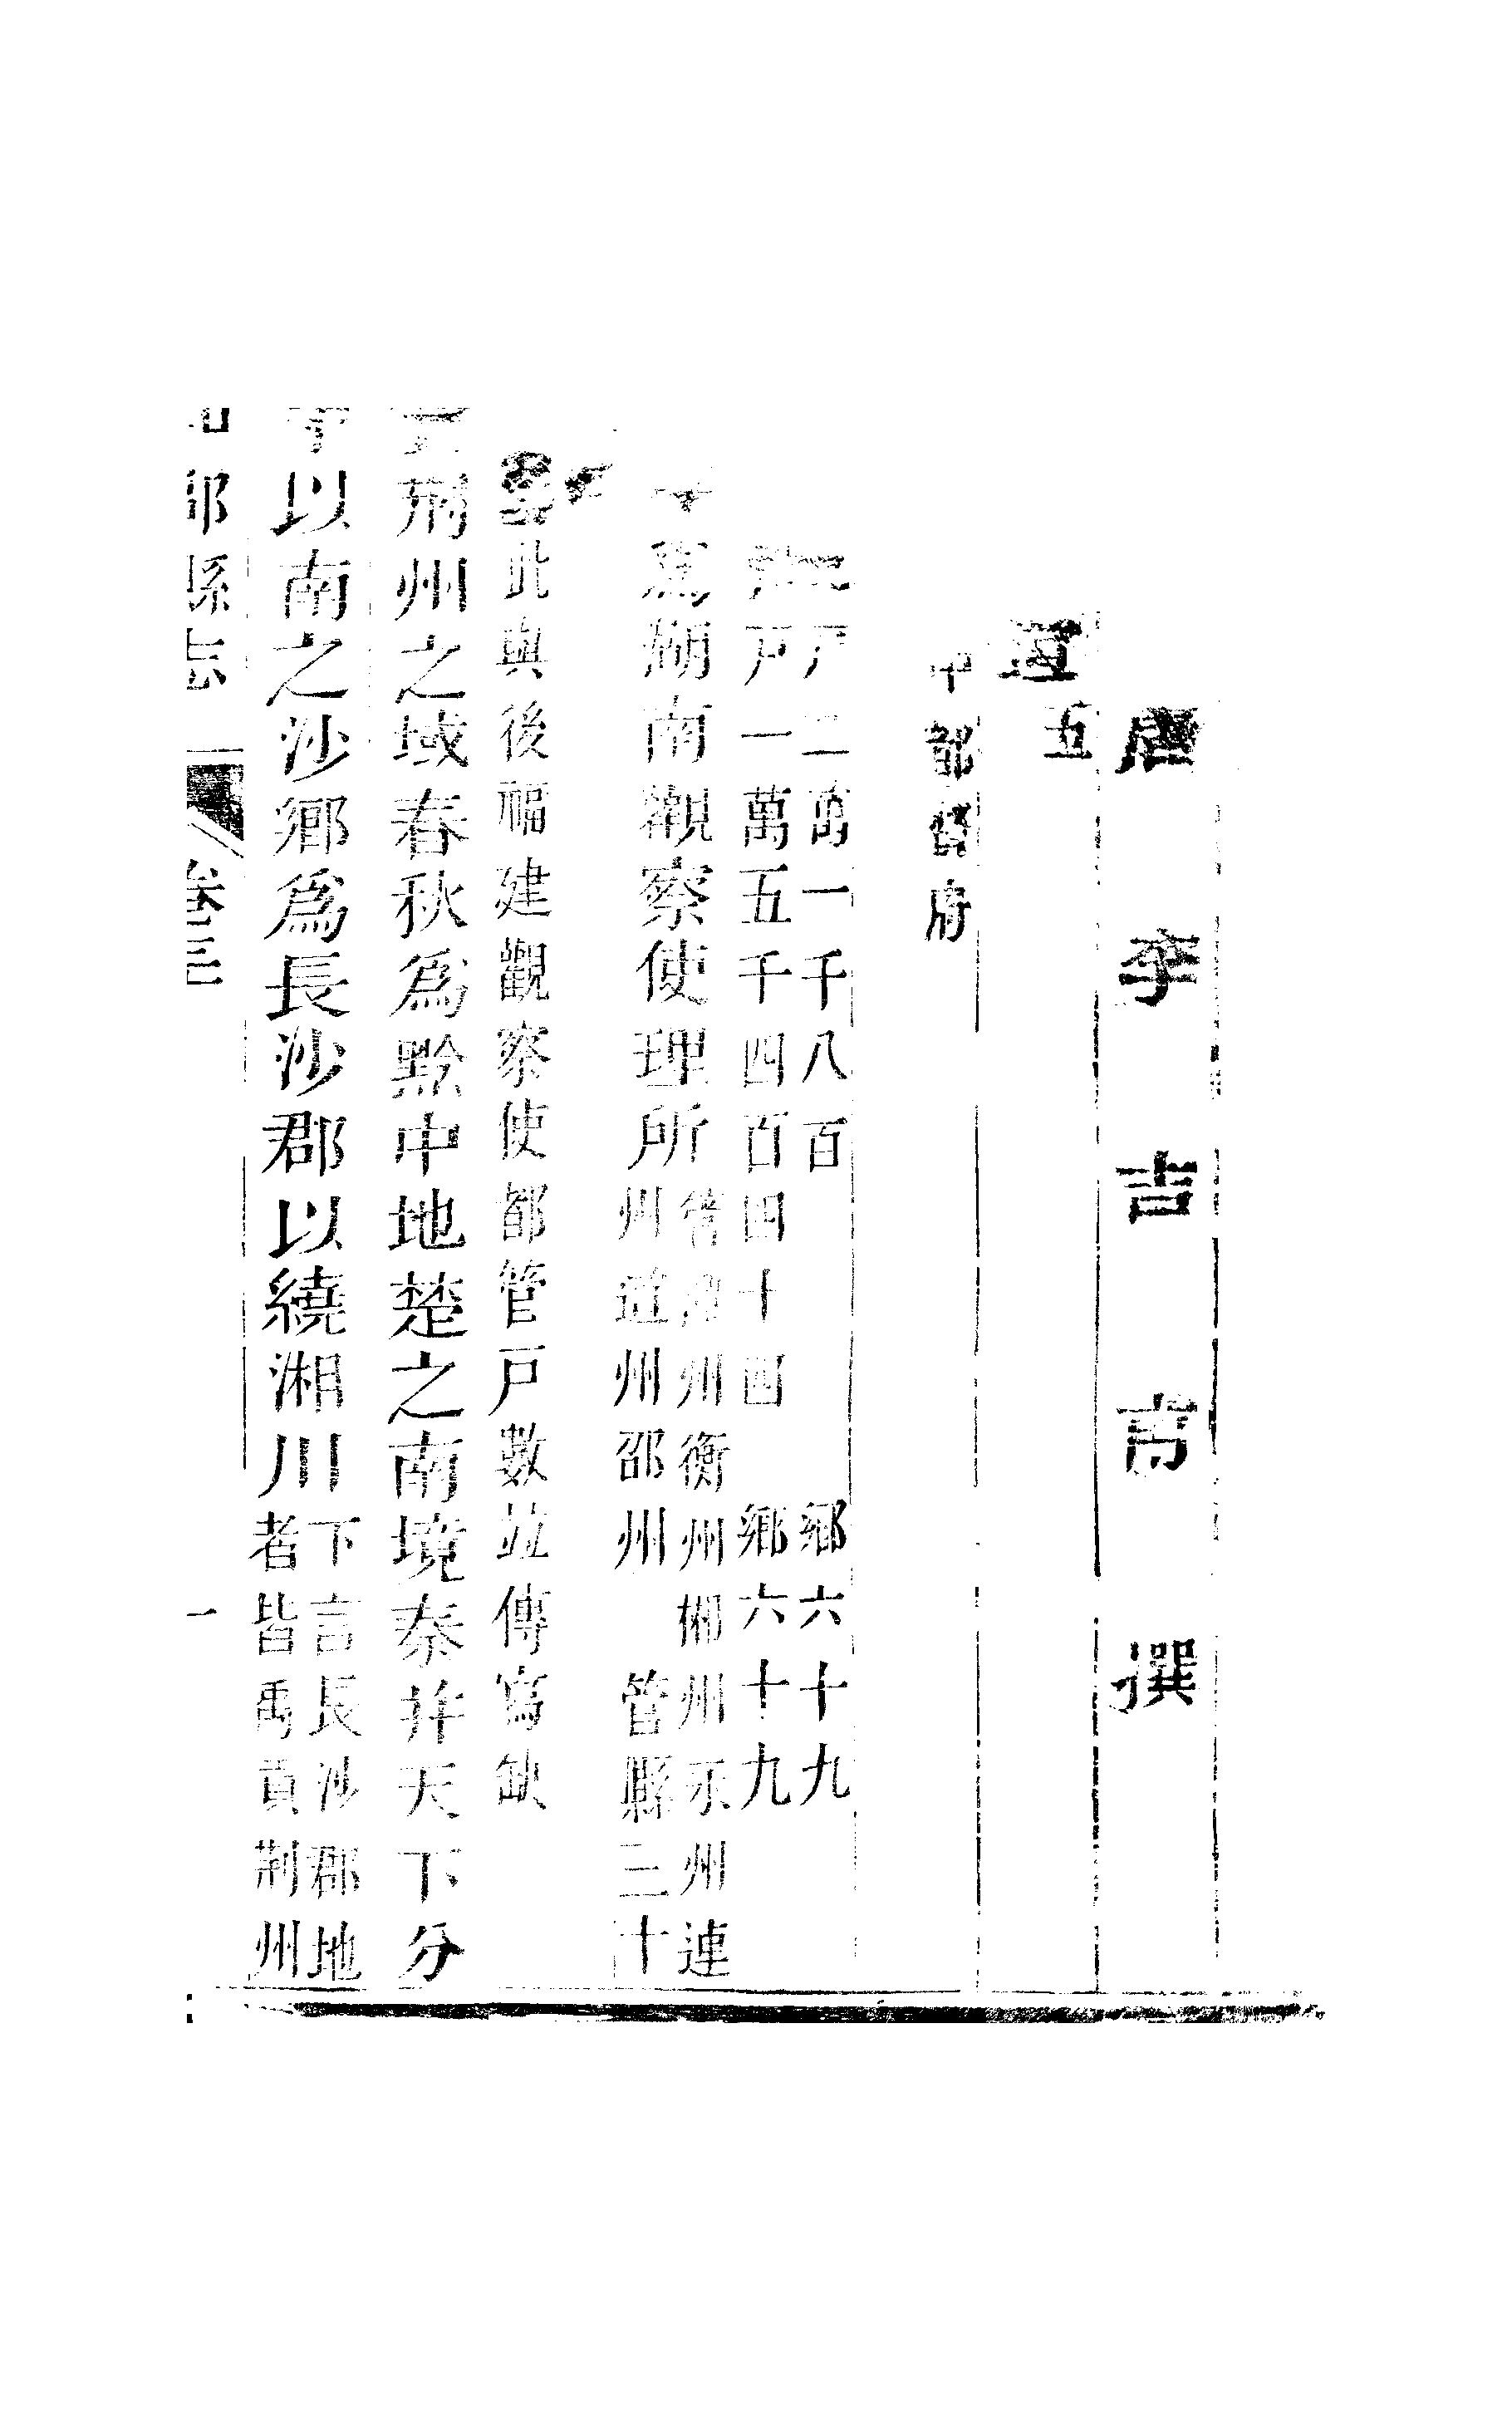 唐李吉甫撰
道五
中都督府
戶二萬一千八百 鄉六十九
戶一萬五千四百四十四 鄉六十九
為湖南觀察使理所 管潭州衡州郴州永州連
州道州邵州 管縣三十
此與後福建觀察使都管戶數並傳寫缺
荆州之域春秋為黔中地楚之南境秦并天下分
以南之沙鄉為長沙郡以繞湘川 下言長沙郡地
者皆禹貢荆州
郡縣志 卷三 一